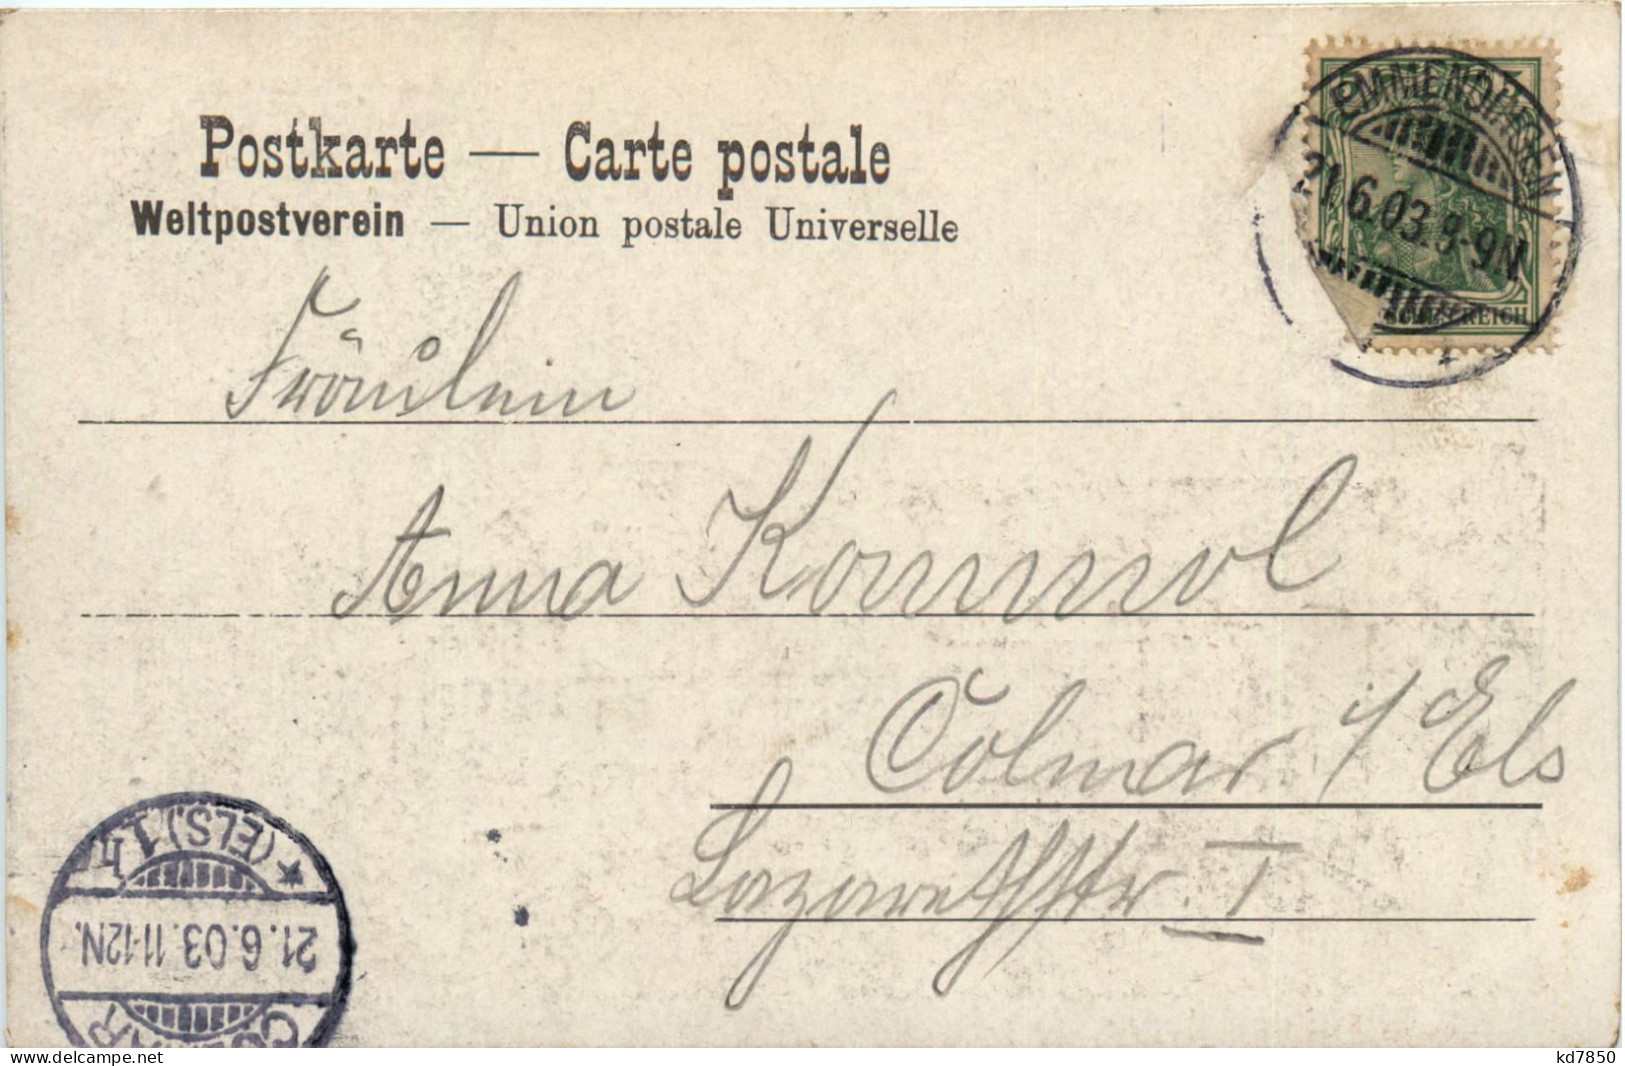 Postkarte — Carte postale
Weltpostverein — Union postale Universelle
EMMENDINGEN
21.6.03.8-9N
REICH
Fräulein
Anna
Colmar i/Els
Lazarethstr. I
COLMAR
21.6.03.11-12N.
* (ELS). 1 h
delcampe.net
kd7850